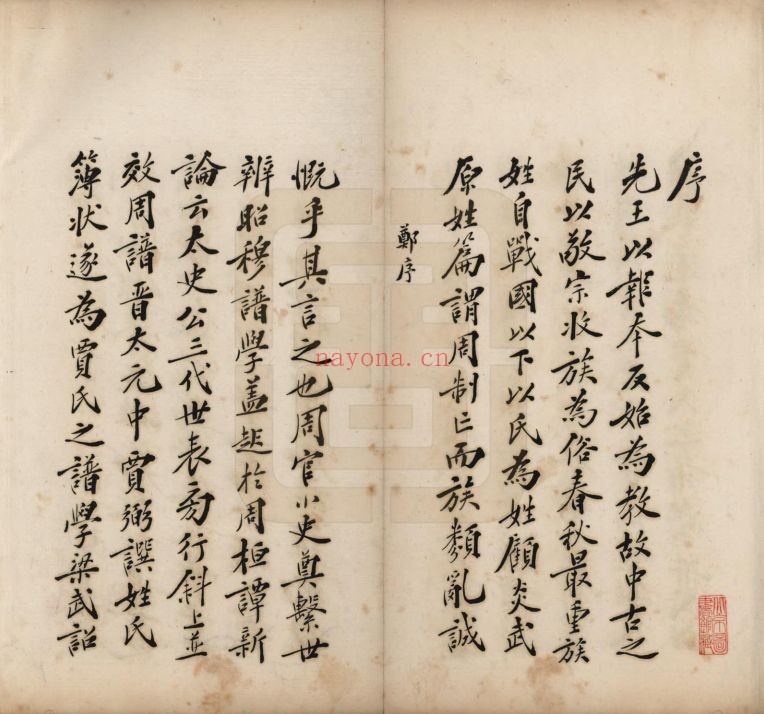 序
先王以報本反始為教故中古之
民以敬宗收族為俗春秋最重族
姓自戰國以下以氏為姓顧炎武
原姓篇謂周制亡而族類亂誠
鄭序
慨乎其言之也周官小史奠繫世
辨昭穆譜學蓋起於周桓譚新
論云太史公三代世表旁行斜上並
效周譜晉太元中賈弼譔姓氏
簿狀遂為賈氏之譜學梁武詔
nayona.cn